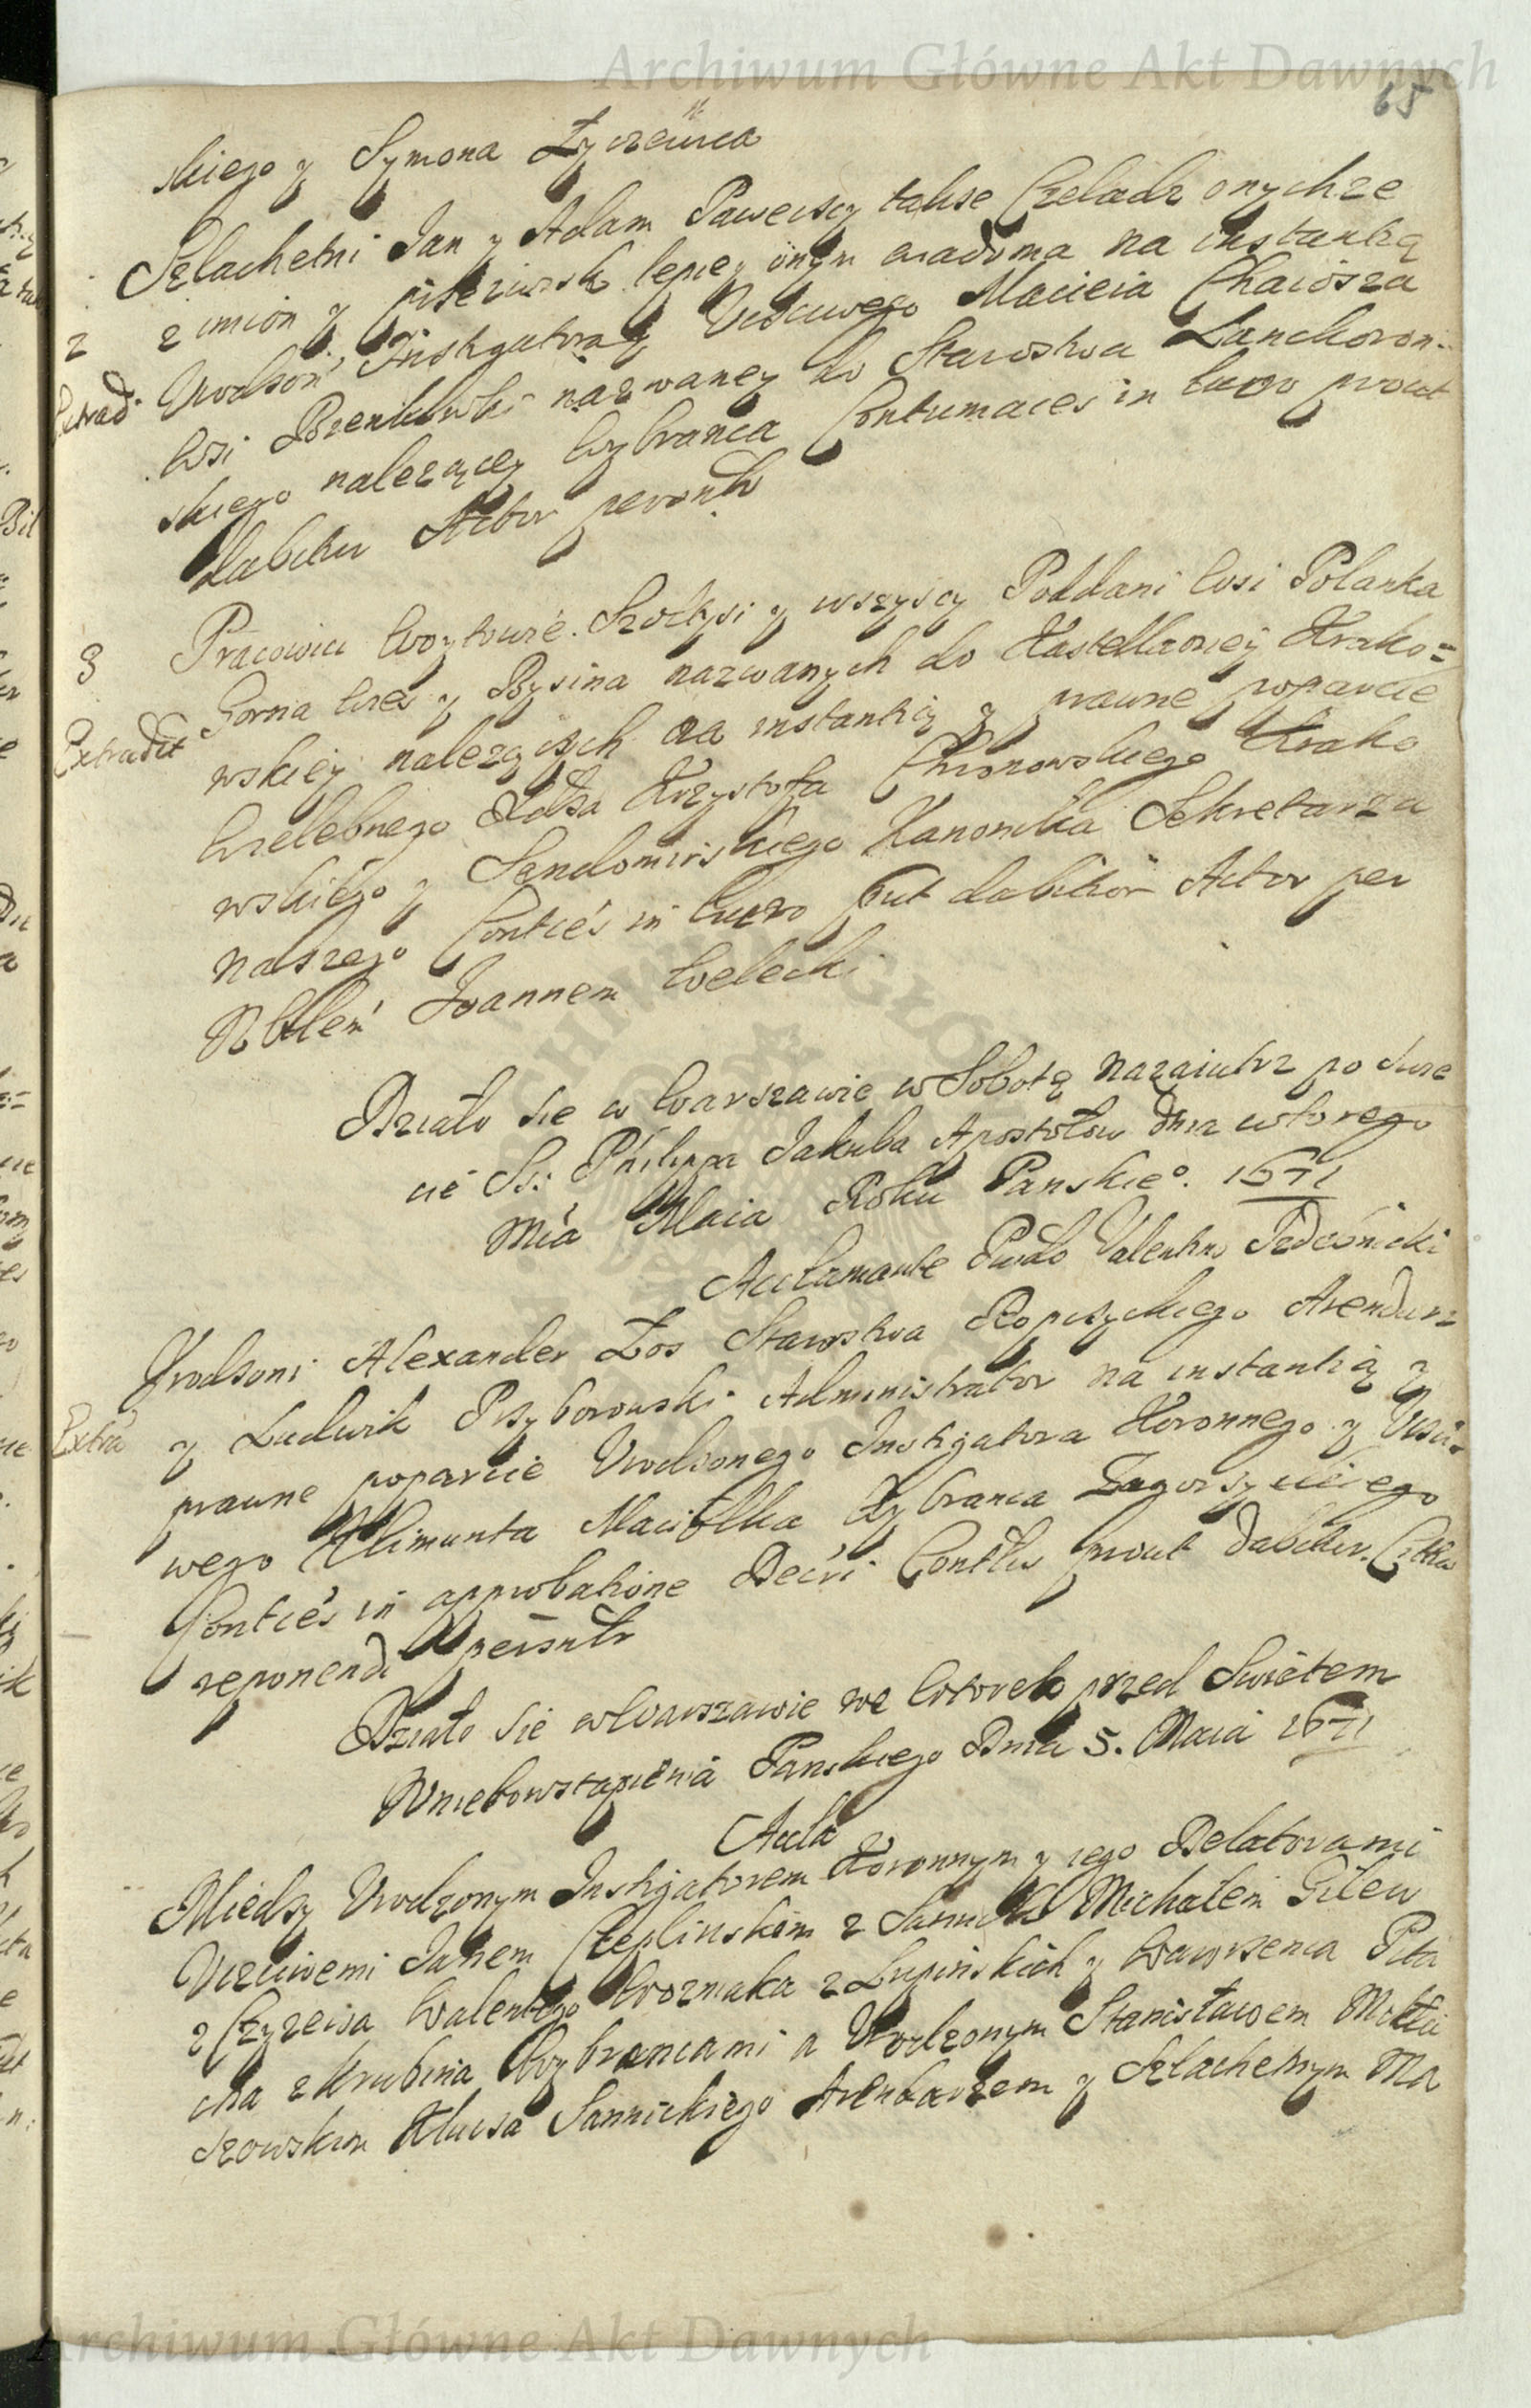 Archiwum Główne Akt Dawnych
65
skiego y Symona Zyczewca
Szlachetni Jan y Adam Paweiscy takse Czeladz onychze
2 z imion y przezwisk lepiey onym wiadoma na instantią
Extrad. Urodzon Instigatora y Uczciwego Macieia
Wsi nazwaney do Starostwa Lanckoron-
skiego nalezącey Wybranca Contumaces in lucro prout
dabitur Actor personltr
3 Pracowici Woytowie Szołtysi y wszyscy Poddani Wsi Polanka
Gorna Wies y Bysina nazwanych do Kastellaniey Krako=
Extradit wskiey nalezących na instantią y prawne poparcie
Wielebnego Xdza Krzysztofa Chronowskiego Krako
wskiego y Sendomirskiego Kanonika Sekretarza
Naszego Conties in lucro put dabitur Actor per
Nblem Joannem Welecki
Działo sie w Warszawie w Sobotę nazaiutrz po swie
cie SS: Philippa Jakuba Apostołow dnia wtorego
Mca Maia Roku Panskieo. 1671
Acclamante Pvdo Valentino
Urodzoni Alexander Łos Starostwa Ropczyckiego Arendarz
Extra y Ludwik Przyborowski Administrator na instantią y
prawne poparcie Urodzonego Instigatora Koronnego y Uczci-
wego Klimunta Maciołka Wybranca Zagorzyckiego
Conties in approbatione Decri Contlis prout dabitur. Cittis
reponendi persnltr
Działo sie w Warszawie we Wtorek przed Swietem
Wniebowstąpienia Panskiego Dnia 5. Maia 1671
Accla
Miedzy Urodzonym Instigatorem Koronnym y iego Delatorami
Uczciwemi Janem Czeplinskim z Sannik Michałem Gilew
z Czyzewa Walentego Wozniaka z Lupinskich y Wawrzenca Pita
cha z Krubina Wybrancami a Urodzonym Stanisławem
szowskim Klucza Sannickiego Arendarzem y Szlachetnym Ma
Archiwum Główne Akt Dawnych